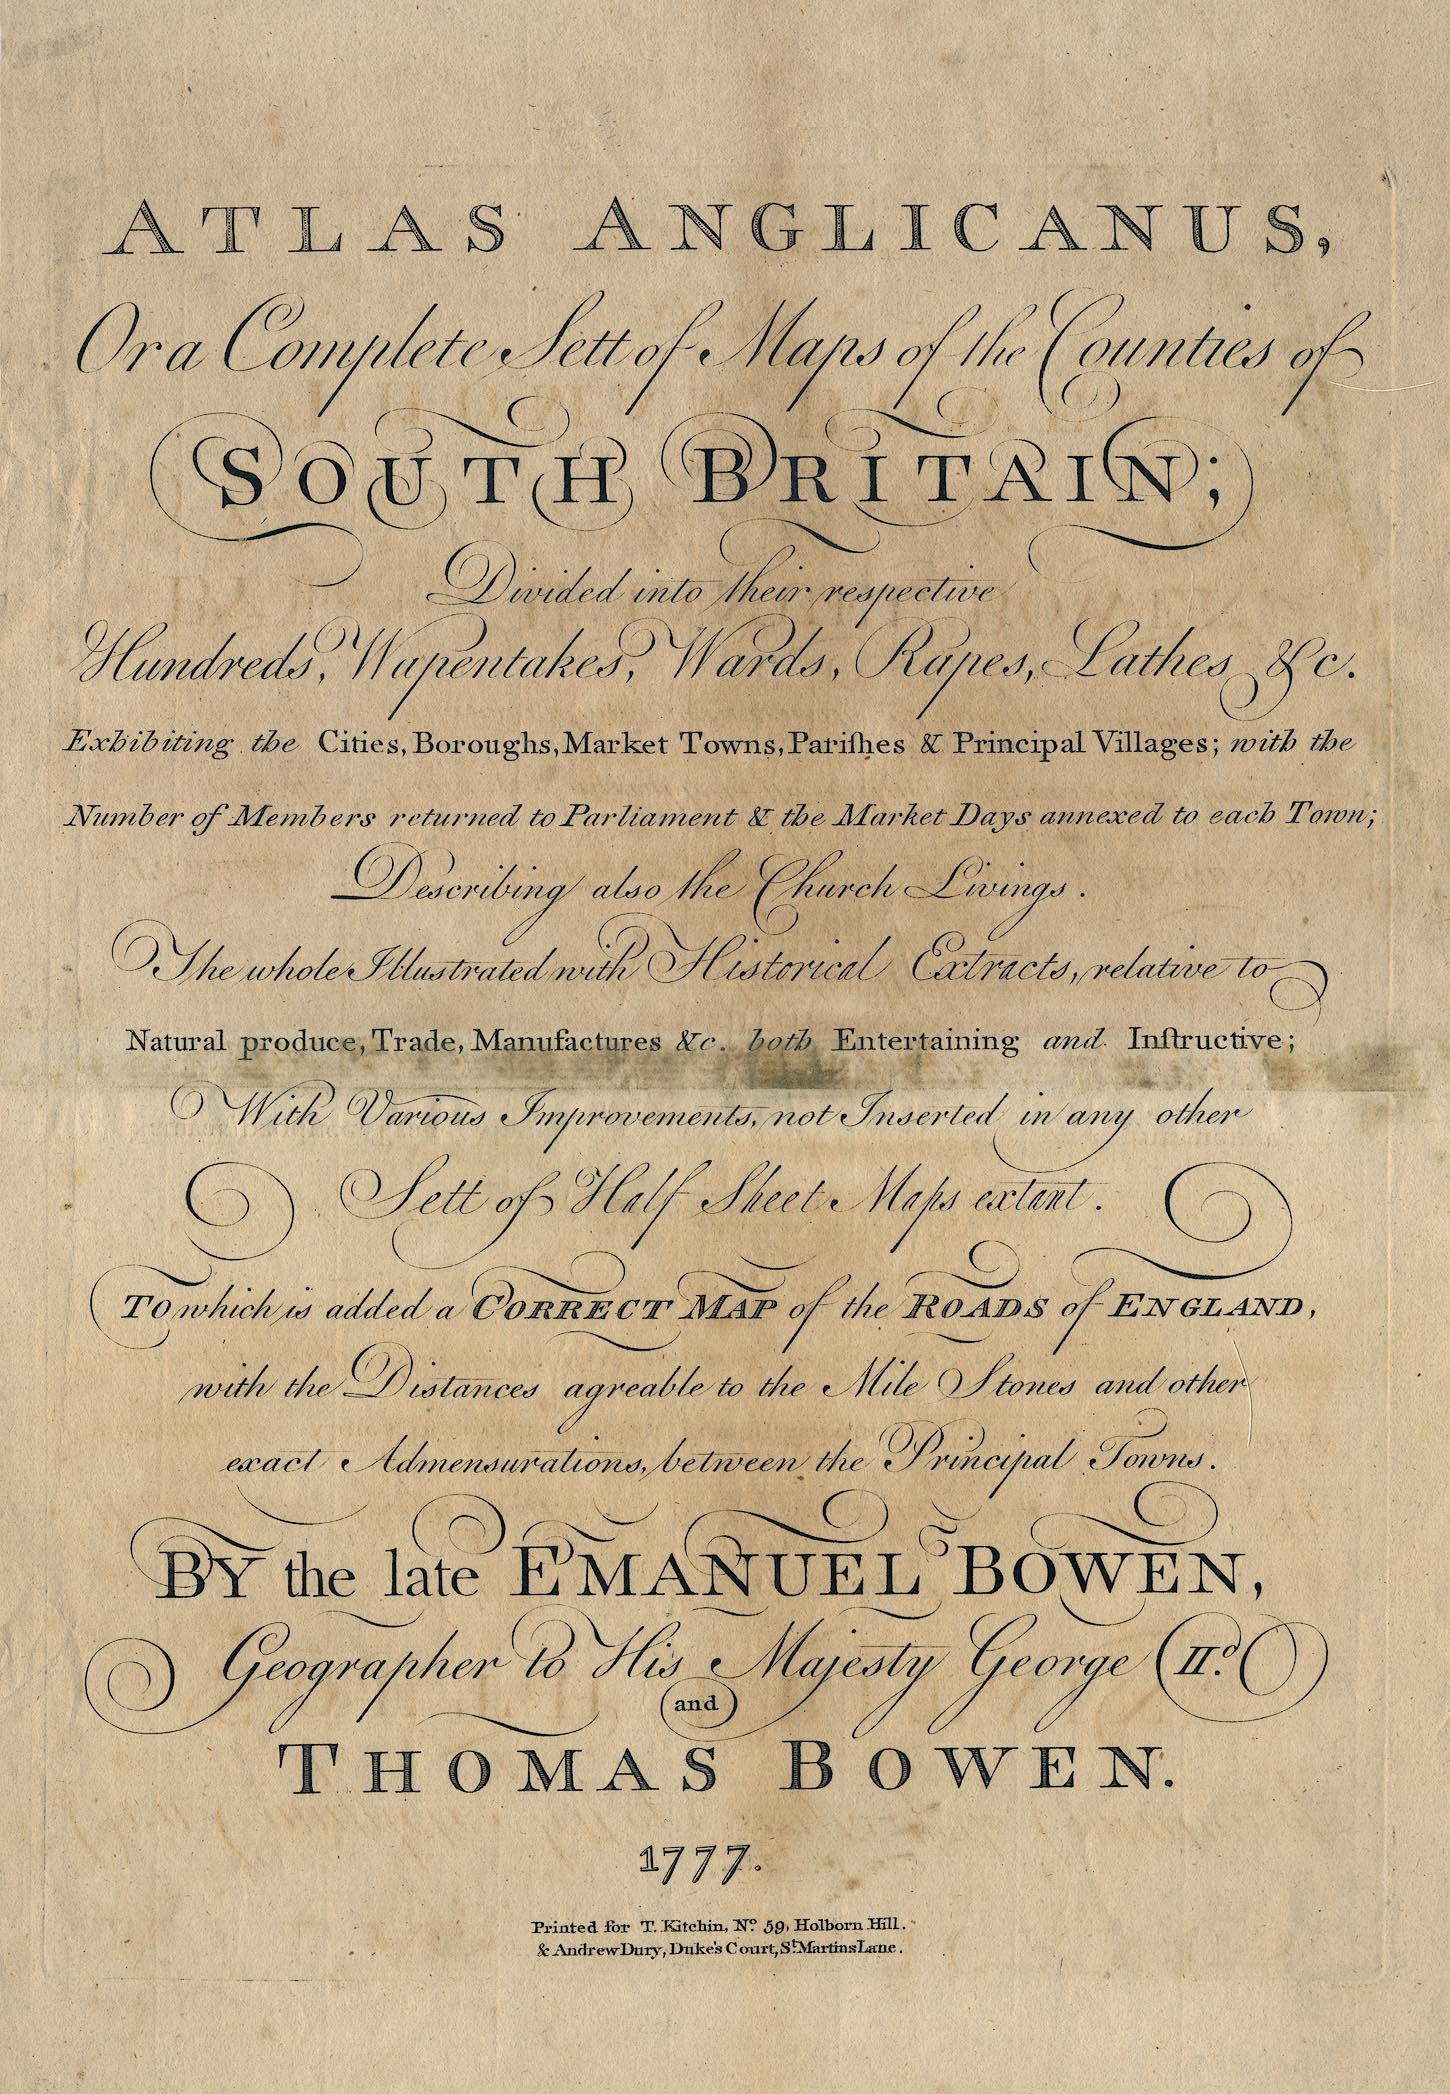 ATLAS ANGLICANUS,
Or a Complete Sett of Maps of the Counties of
SOUTH BRITAIN;
Divided into their respective
Hundreds, Wapentakes, Wards, Rapes, Lathes &c.
Exhibiting the Cities, Boroughs, Market Towns, Pariſhes & Principal Villages; with the
Number of Members returned to Parliament & the Market Days annexed to each Town;
Describing also the Church Livings.
The whole Illustrated with Historical Extracts, relative to
Natural produce, Trade, Manufactures &c. both Entertaining and Inſtructive;
With Various Improvements, not Inserted in any other
Sett of Half Sheet Maps extant.
TO which is added a CORRECT MAP of the ROADS of ENGLAND,
with the Distances agreable to the Mile Stones and other
exact Admensurations, between the Principal Towns.
BY the late EMANUEL BOWEN,
Geographer to His Majesty George IId.
and
THOMAS BOWEN.
1777.
Printed for T. Kitchin, No. 59, Holborn Hill.
& Andrew Dury, Duke's Court, St. Martins Lane.